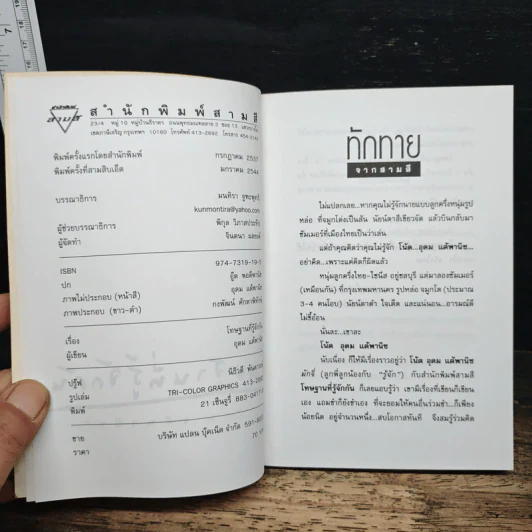 สำนักพิมพ์สามสี
23/4 หมู่ 10 หมู่บ้านธีรวรา ถนนพุทธมณฑลสาย 2 ซอย 13
เขตภาษีเจริญ กรุงเทพฯ 10160 โทรศัพท์ 413-2692 โทรสาร 454-
พิมพ์ครั้งแรกโดยสำนักพิมพ์ กรกฎาคม 2537
พิมพ์ครั้งที่สามสิบเอ็ด มกราคม 2544
บรรณาธิการ มนทิรา
kunmontira@yahoo.com
ผู้ช่วยบรรณาธิการ พิกุล
ผู้จัดทำ จินตนา
ISBN 974-7319-19-
ปก
ภาพไม่ประกอบ (หน้าสี) อุดม แต้พานิช
ภาพประกอบ (ขาว-ดำ) กงพัฒน์ ศักดาพิทักษ์
เรื่อง โทษฐานที่รู้จักกัน
ผู้เขียน อุดม แต้พานิช
ปรู๊ฟ นิธิวดี
รูปเล่ม TRI-COLOR GRAPHICS 413-
พิมพ์ 21 เซ็นจูรี่ 883-0411-
ขาย บริษัท แปลน บุ๊คเน็ต จำกัด 591-
ราคา 70
ทักทาย
จากสามสี
ไม่แปลกเลย...หากคุณไม่รู้จักนายแบบลูกครึ่งหนุ่มรูป
หล่อ ที่จมูกโด่งเป็นสัน นัยน์ตาสีเขียวจัด แล้วบินกลับมา
ซัมเมอร์ที่เมืองไทยเป็นว่าเล่น
แต่ถ้าคุณคิดว่าคุณไม่รู้จัก โน้ต...อุดม แต้พานิช...
อย่าคิด...เพราะแค่คิดก็ผิดแล้ว
หนุ่มลูกครึ่งไทย-ไซนีส อยู่ชลบุรี แต่มาลองซัมเมอร์
(เหมือนกัน) ที่กรุงเทพมหานคร รูปหล่อ จมูกโต (ประมาณ
3-4 คนโอบ) นัยน์ตาดำ ใจเด็ด และแน่นอน...อารมณ์ดี
ไม่ขี้อ้อน
นั่นละ...เขาละ
โน้ต อุดม แต้พานิช
นับเนื่อง ก็ให้มีเรื่องราวอยู่ว่า โน้ต อุดม แต้พานิช
มักจี่ (ลูกพี่ลูกน้องกับ “รู้จัก”) กับสำนักพิมพ์สามสี
โทษฐานที่รู้จักกัน ก็เลยแอบรู้ว่า เขามีเรื่องที่เขียนก็เขียน
เอง แถมขำก็ยังขำเอง ที่จะยอมให้คนอื่นร่วมขำ...ก็เพียง
น้อยนิด อยู่จำนวนหนึ่ง...สบโอกาสทันที จึงสมรู้ร่วมคิด